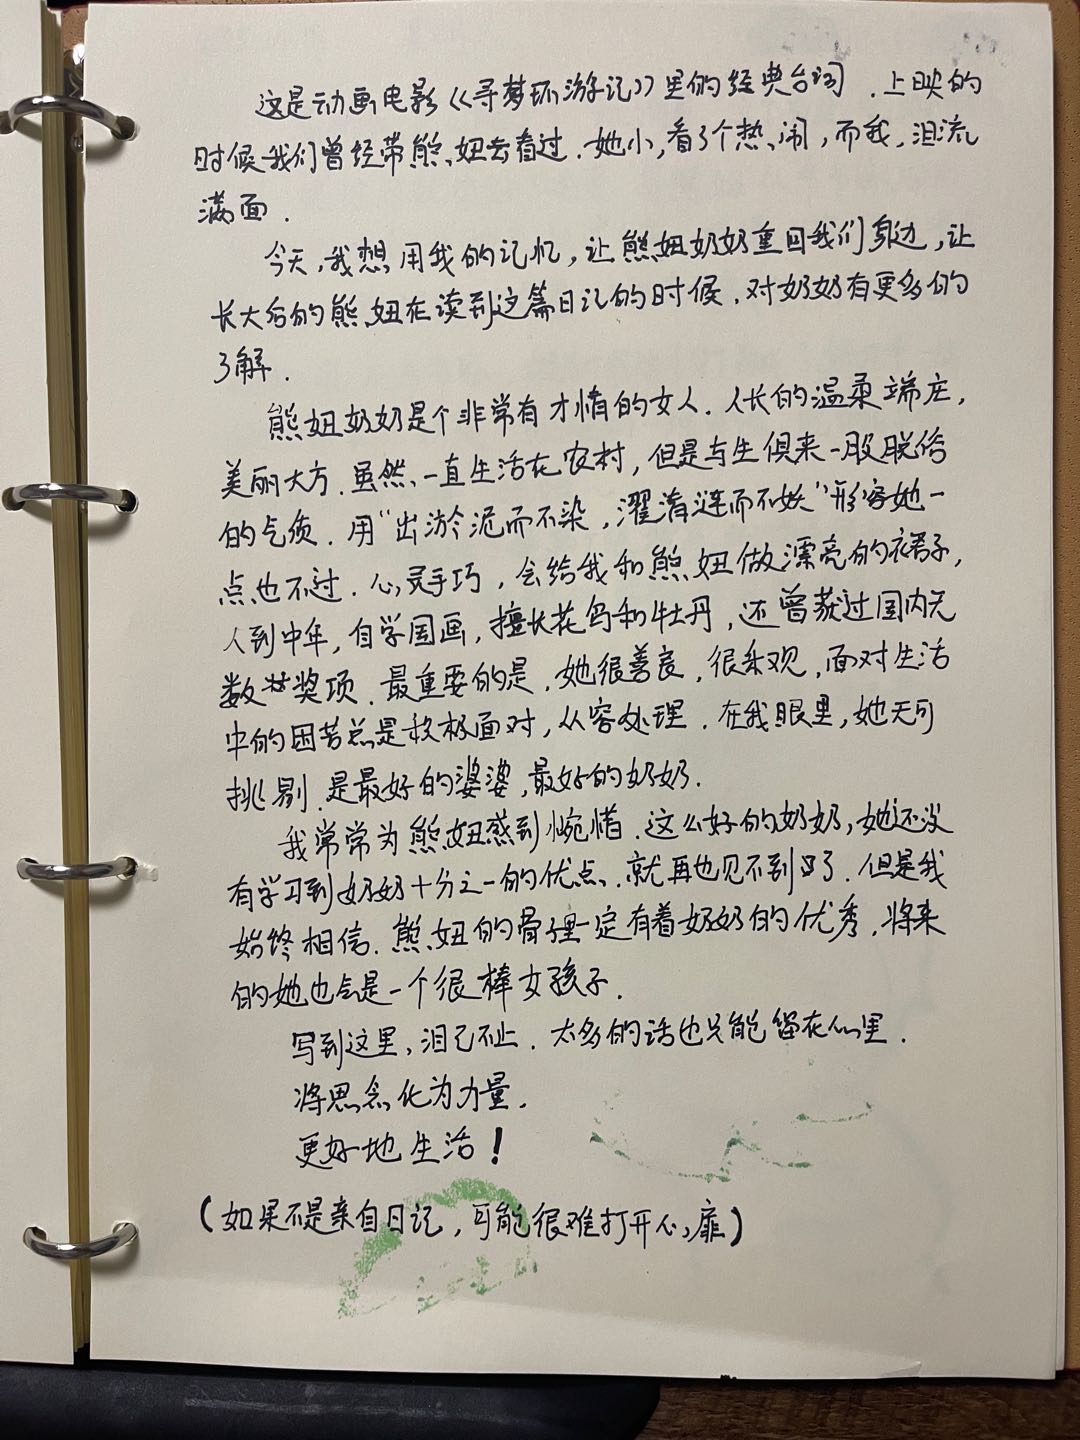 这是动画电影《寻梦环游记》里的经典台词.上映的
时候我们曾经带熊妞去看过.她小,看了个热闹,而我,泪流
满面.
今天,我想用我的记忆,让熊妞奶奶重回我们身边,让
长大后的熊妞在读到这篇日记的时候.对奶奶有更多的
了解.
熊妞奶奶是个非常有才情的女人.人长的温柔端庄,
美丽大方.虽然一直生活在农村,但是与生俱来一股脱俗
的气质.用“出淤泥而不染,濯清涟而不妖”形容她一
点也不过.心灵手巧,会给我和熊妞做漂亮的裙子,
人到中年,自学国画,擅长花鸟和牡丹,还曾获过国内无
数奖项.最重要的是.她很善良.很乐观.面对生活
中的困苦总是积极面对,从容处理.在我眼里,她无可
挑剔.是最好的婆婆,最好的奶奶.
我常常为熊妞感到惋惜.这么好的奶奶,她还没
有学习到奶奶十分之一的优点.就再也见不到了.但是我
始终相信.熊妞的骨子里一定有着奶奶的优秀.将来
的她也会是一个很棒女孩子.
写到这里,泪已不止.太多的话也只能留在心里.
将思念化为力量.
更好地生活!
(如果不是亲自日记,可能很难打开心扉)